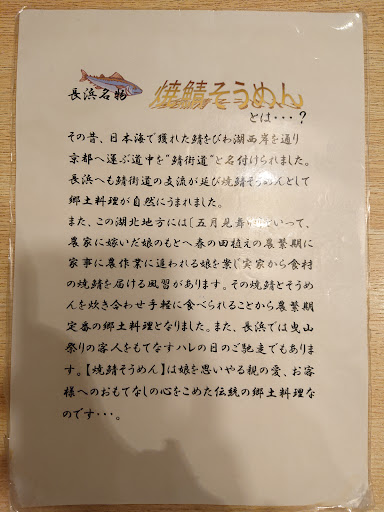 長浜名物 焼鯖そうめん
とは・・・？
その昔、日本海で獲れた鯖をびわ湖西岸を通り
京都へ運ぶ道中を"鯖街道"と名付けられました。
長浜へも鯖街道の支流が延び焼鯖そうめんとして
郷土料理が自然にうまれました。
また、この湖北地方には〔五月見舞いって、
農家に嫁いだ娘のもとへ春の田植えの農繁期に
家事に農作業に追われる娘を案じ実家から食材
の焼鯖を届ける風習があります。その焼鯖とそうめん
を炊き合わせ手軽に食べられることから農繁期
定番の郷土料理となりました。また、長浜では曳山
祭りの客人をもてなすハレの日のご馳走でもありま
す。【焼鯖そうめん】は娘を思いやる親の愛、お客
様へのおもてなしの心をこめた伝統の郷土料理な
のです・・・。